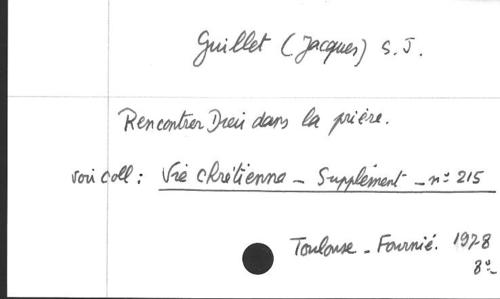 Guillet (Jacques) S. J.
Rencontrer Dieu dans la prière.
voir coll : Vie chrétienne - Supplément - nº 215
Toulouse - Fournié. 1978
8º-